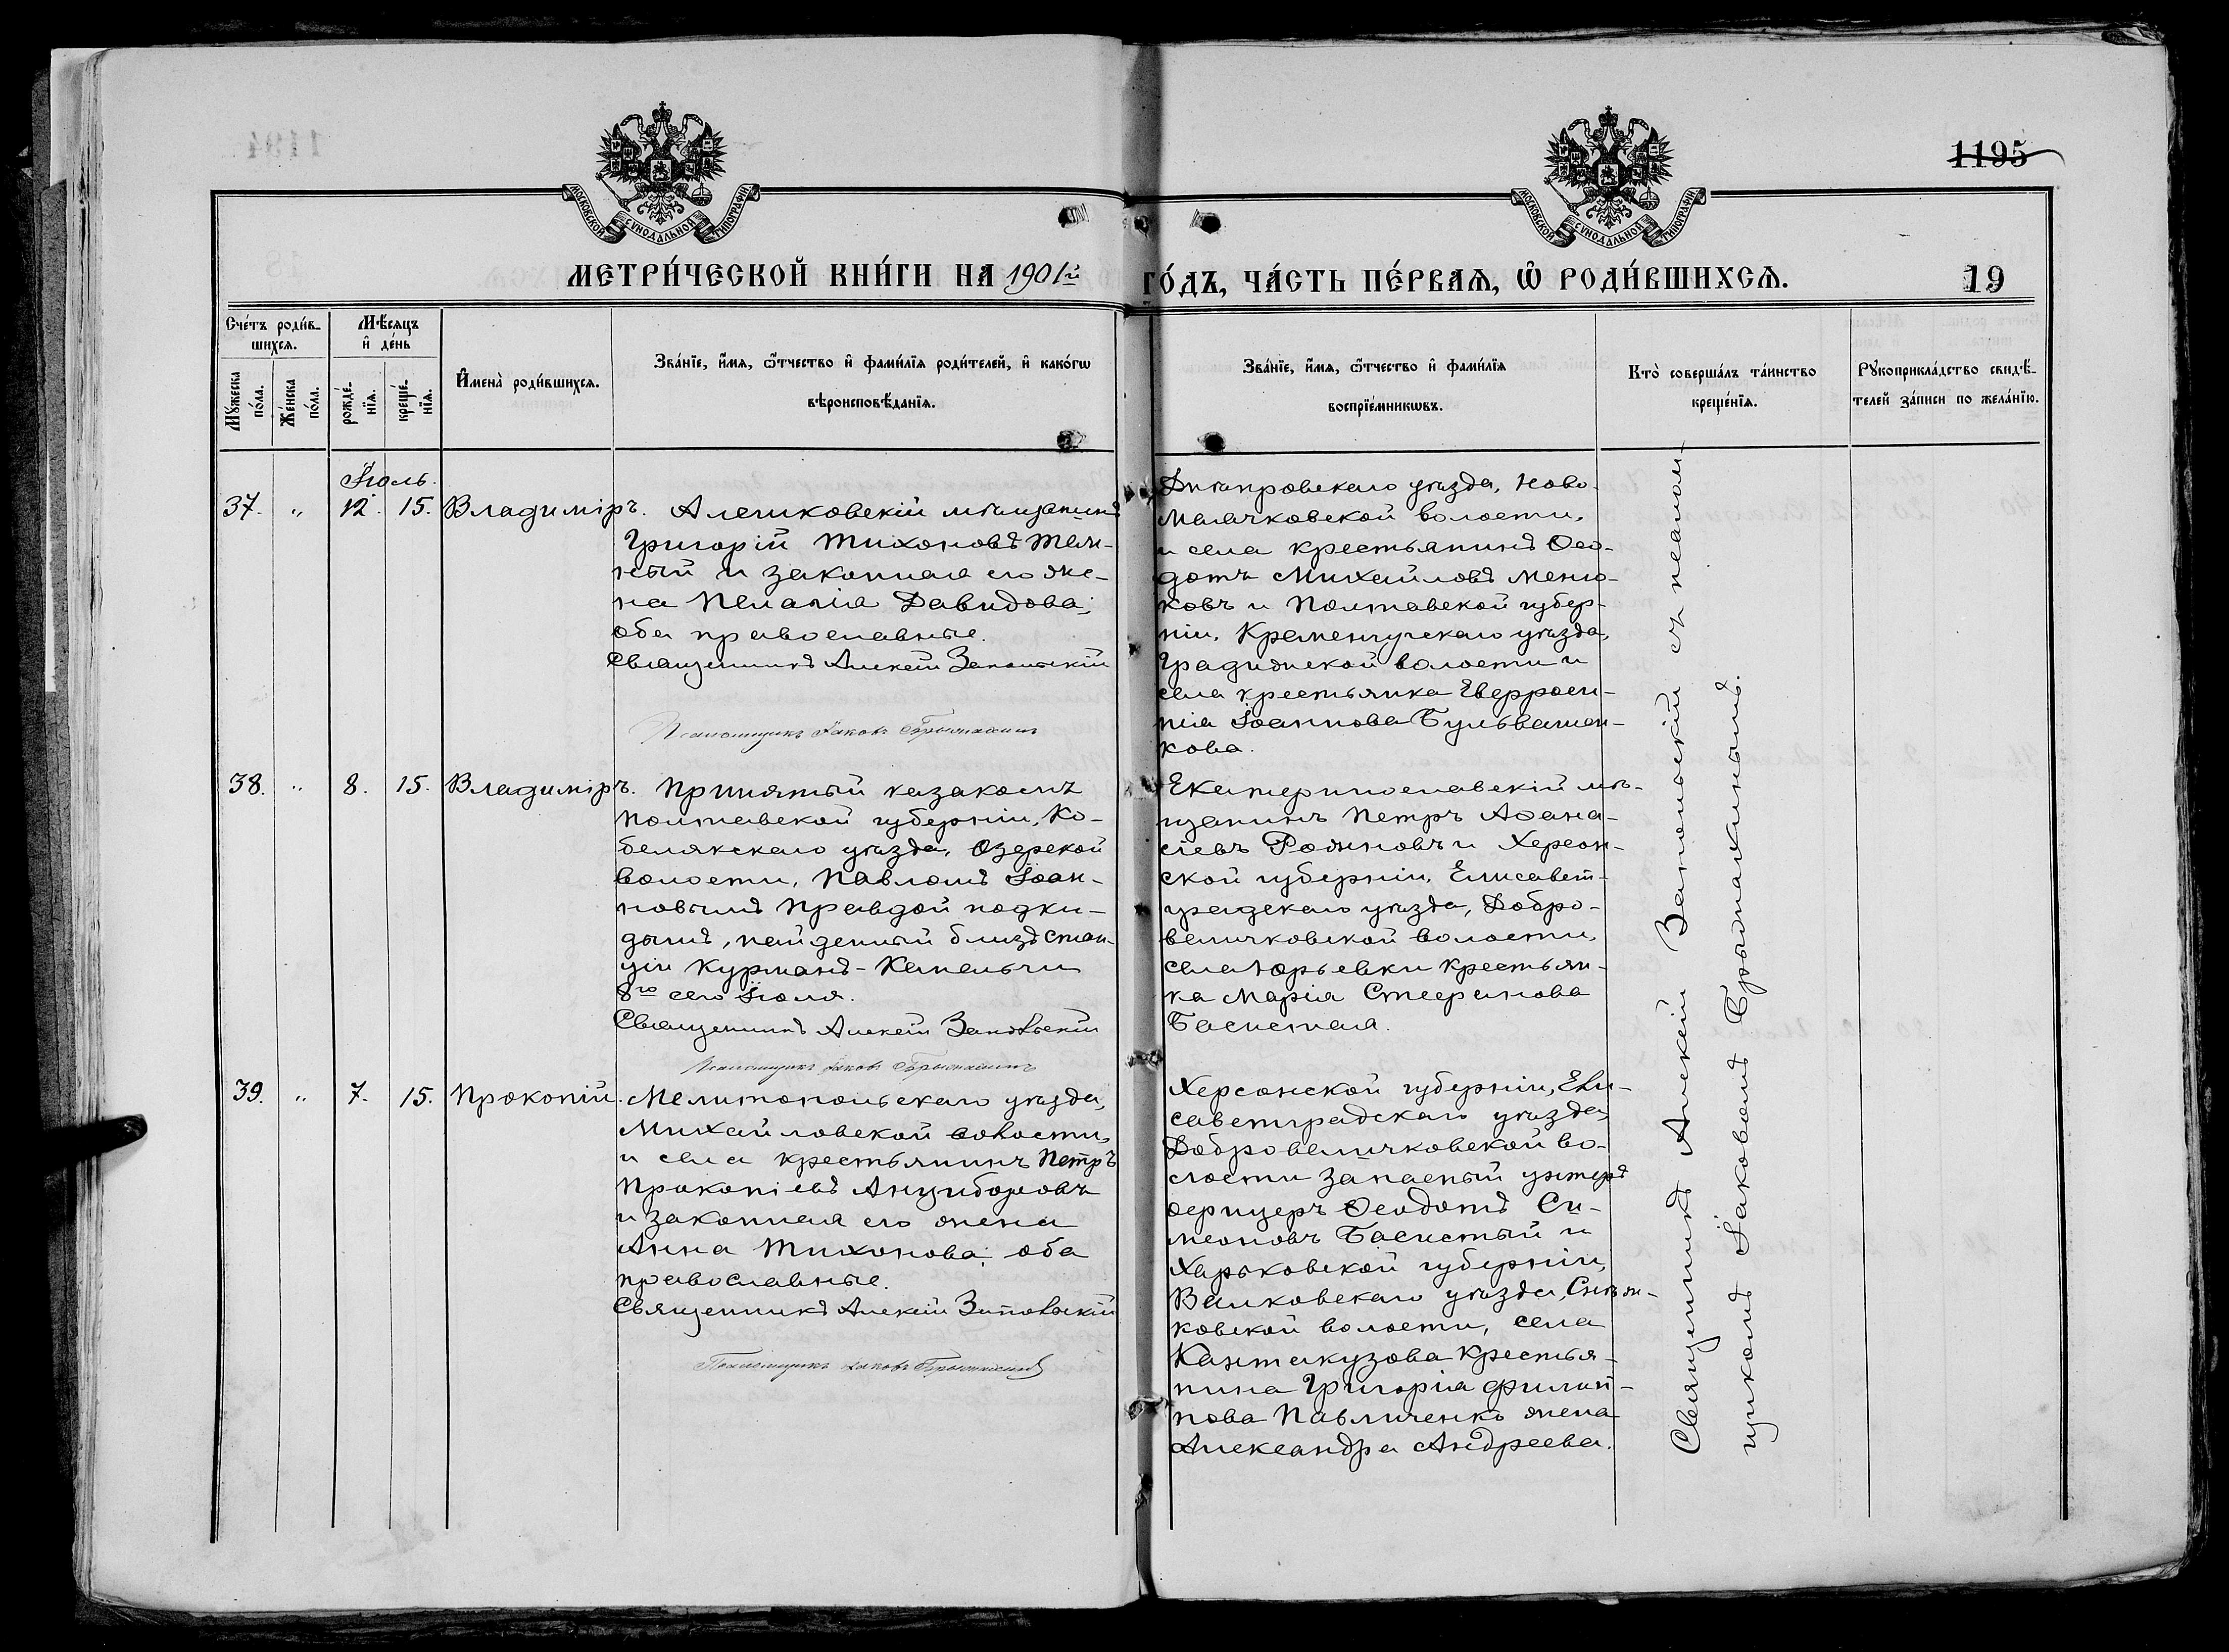 1195
МОСКОВСКОЙ СУНОДАЛЬНОЙ ТИПОГРАФІИ
МОСКОВСКОЙ СУНОДАЛЬНОЙ ТИПОГРАФІИ
МЕТРИ́ЧЕСКОЙ КНИ́ГИ НА 1901й ГО́ДЪ, ЧА́СТЬ ПЕ́РВАѦ, Ѽ РОДИ́ВШИХСѦ.
19
Сче́тъ роди́в-
шихсѧ.
Мꙋ́жеска по́ла.
Же́нска по́ла.
Мѣ́сѧцъ
и҆ де́нь
рожде́-
нїѧ.
креще́-
нїѧ.
И҆мена̀ роди́вшихсѧ.
Зва́нїе, и҆́мѧ, ѻ҆́тчество и҆ фами́лїѧ роди́телей, и҆ како́гѡ
вѣроисповѣ́данїѧ.
Зва́нїе, и҆́мѧ, ѻ҆́тчество и҆ фами́лїѧ
воспрїе́мникѡвъ.
Кто̀ соверша́лъ та́инство
креще́нїѧ.
Рꙋкоприкла́дство свидѣ́-
телей за́писи по жела́нїю.
Іюль.
37. „ 12. 15. Владиміръ.
Алешковскій мѣщанинъ
Григорій Тихоновъ Тем-
ный и законная его же-
на Пелагія Давидова,
оба православные.
Священникъ Алексій Запольскій
Псаломщикъ Іаковъ
Днѣпровскаго уѣзда, Ново-
Маячковской волости,
и села крестьянинъ Ѳео-
дотъ Михайловъ Меню-
ковъ и Полтавской губер-
ніи, Кременчугскаго уѣзда,
Градижской волости и
села крестьянка Евфроси-
нія Іоаннова
кова.
38. „ 8. 15. Владиміръ.
Принятый казакомъ
Полтавской губерніи, Ко-
белякскаго уѣзда, Озерской
волости, Павломъ Іоан-
новымъ Правдой подки-
дышъ, найденный близъ стан-
ціи Курманъ-Кемельчи
8го сего Іюля.
Священникъ Алексій Запольскій
Псаломщикъ Іаковъ
Екатеринославскій мѣ-
щанинъ Петръ Аѳана-
сіевъ и Херсон-
ской губерніи, Елисавет-
градскаго уѣзда, Добро-
величковской волости,
села Юрьевки крестьян-
ка Марія Стефанова
Басистая.
39. „ 7. 15. Прокопій.
Мелитопольскаго уѣзда,
Михайловской волости,
и села крестьянинъ Петръ
Прокопіевъ Анцыборовъ
и законная его жена
Анна Тихонова; оба
православные.
Священникъ Алексій Запольскій
Псаломщикъ Іаковъ
Херсонской губерніи, Ели-
саветградскаго уѣзда,
Добровеличковской во-
лости запасный унтеръ
офицеръ Ѳеодотъ Си-
меоновъ Басистый и
Харьковской губерніи,
Валковскаго уѣзда, Снѣж-
ковской волости, села
Кантакузова крестья-
нина Григорія Филип-
пова Павличенко жена
Александра Андреева.
Священникъ Алексій Запольскій съ псалом-
щикомъ Іаковомъ